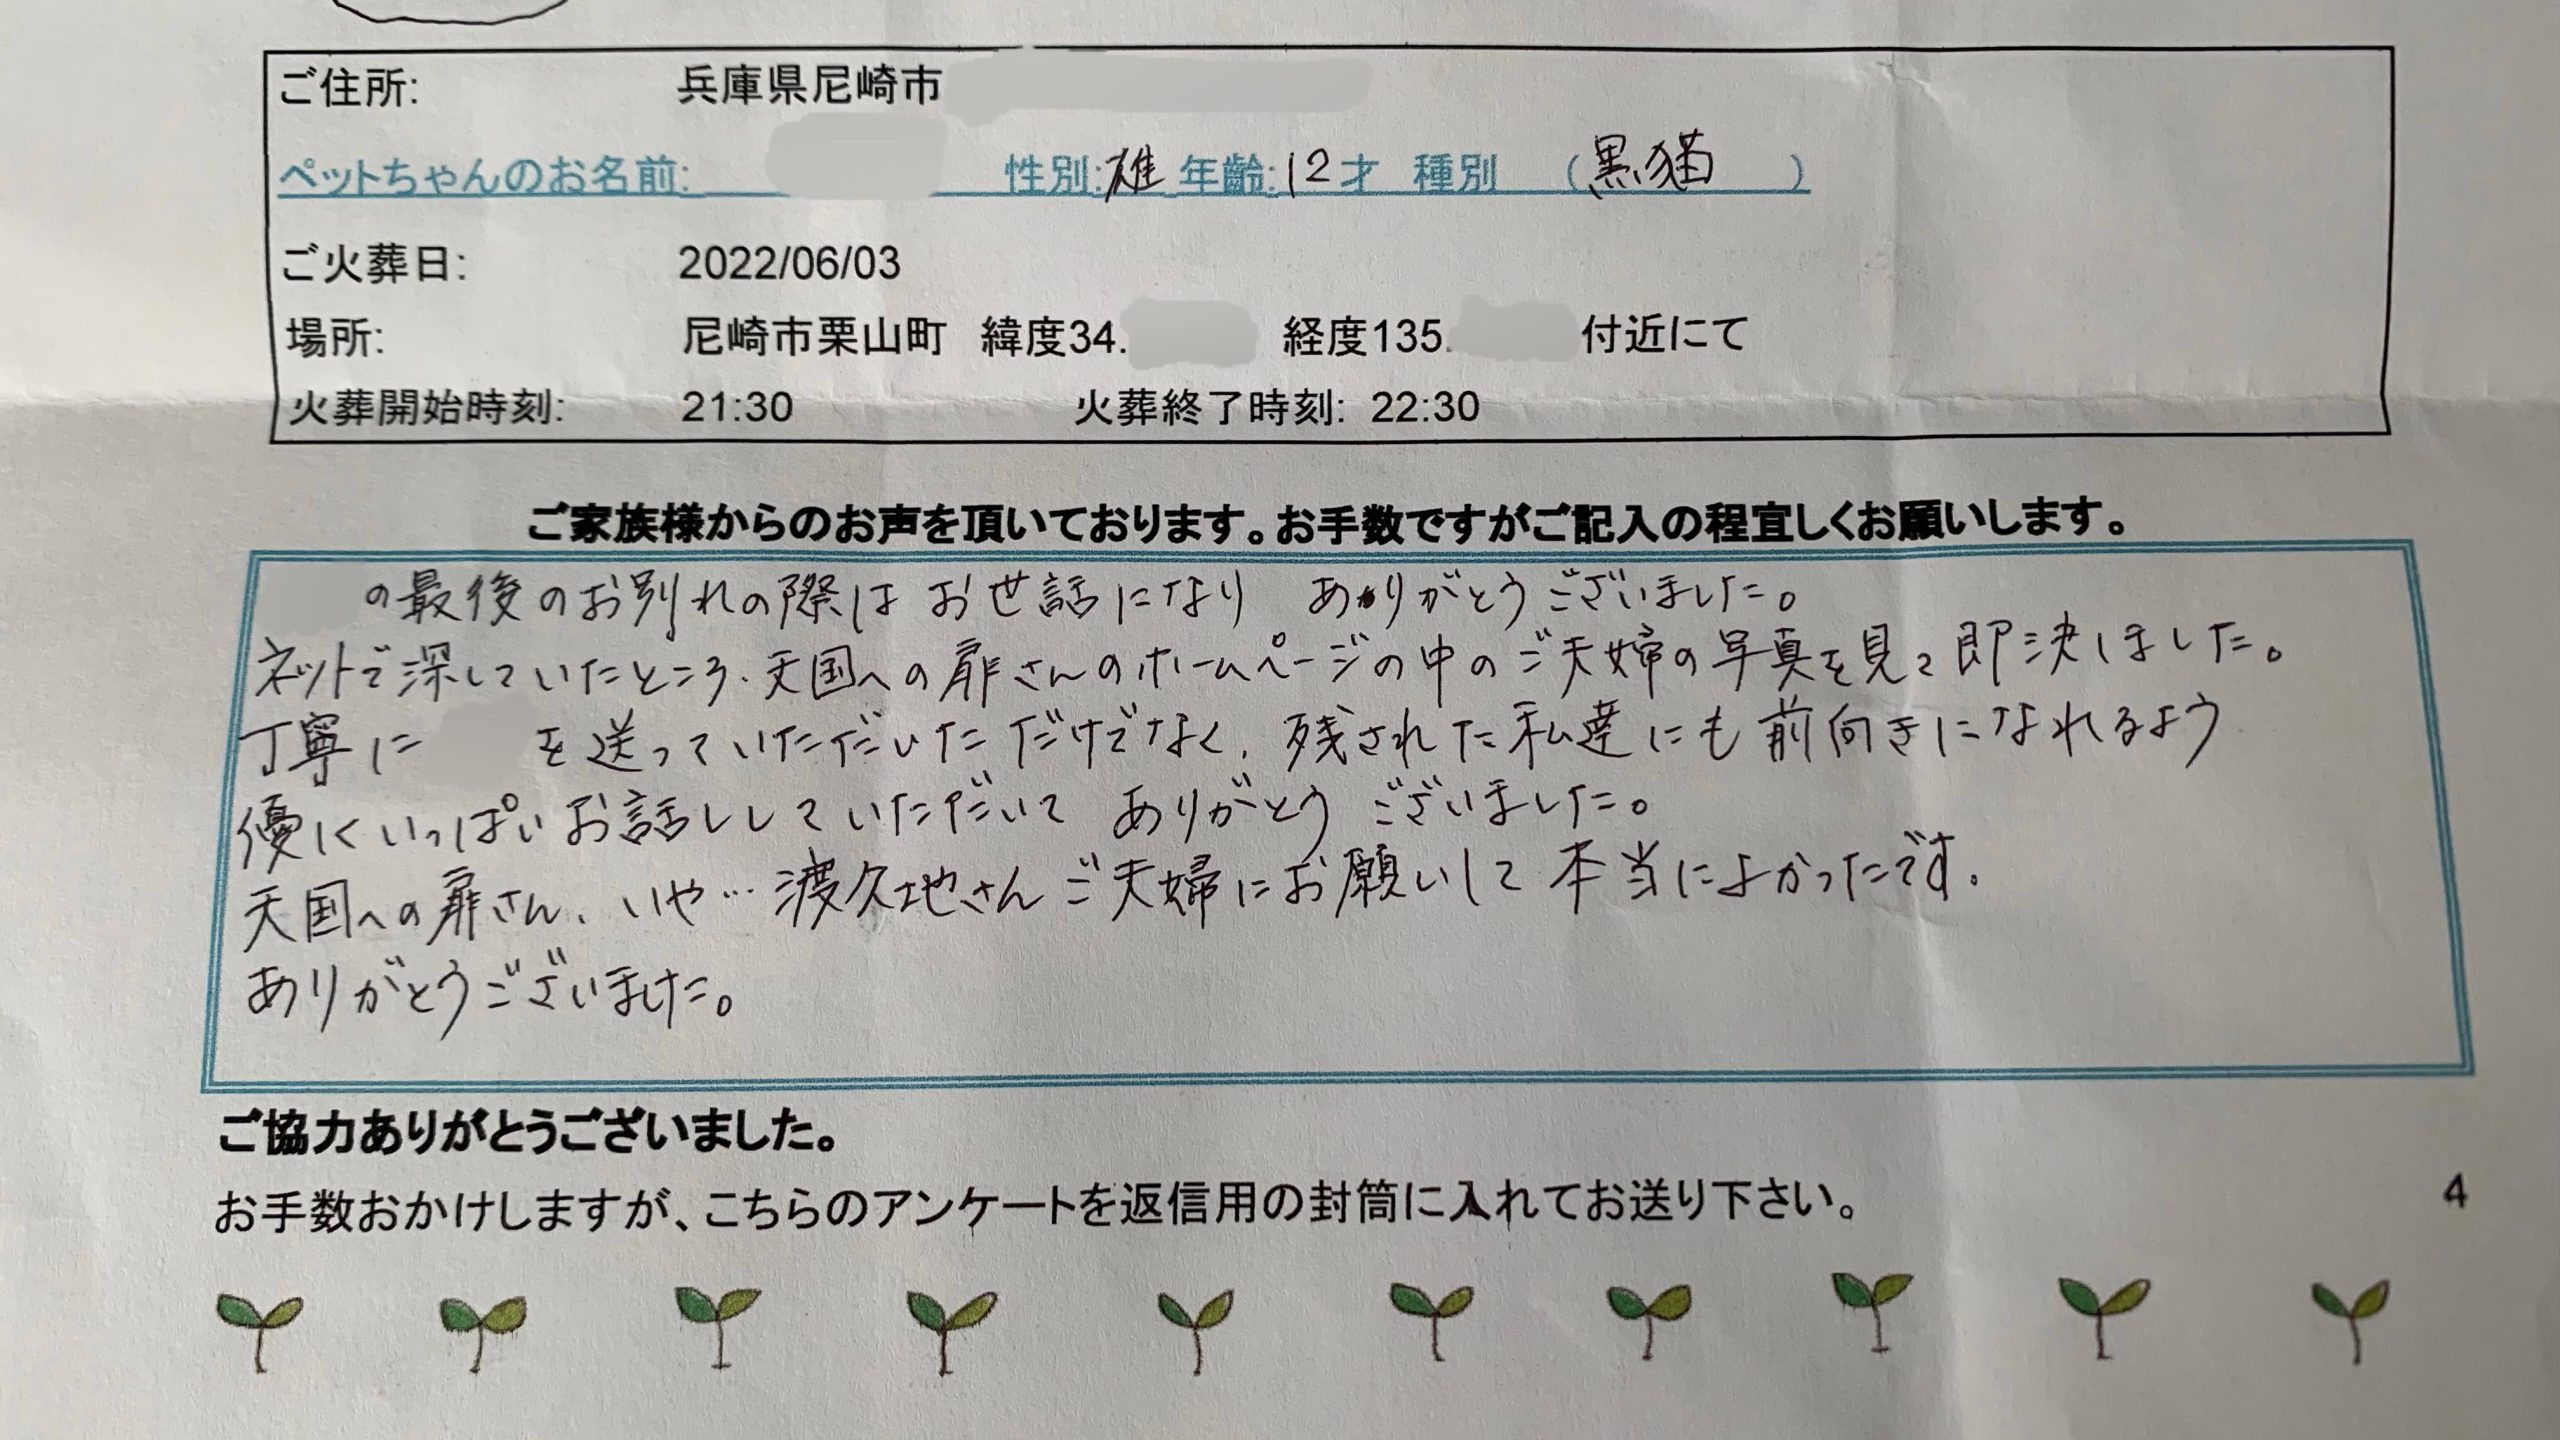 ご住所: 兵庫県尼崎市
ペットちゃんのお名前: 性別:雄 年齢:12才 種別 (黒猫)
ご火葬日: 2022/06/03
場所: 尼崎市栗山町 緯度34. 経度135. 付近にて
火葬開始時刻: 21:30 火葬終了時刻: 22:30
ご家族様からのお声を頂いております。お手数ですがご記入の程宜しくお願いします。
の最後のお別れの際は お世話になり ありがとうございました。
ネットで深していたところ、天国への扉さんのホームページの中のご夫婦の写真を見て即決しました。
丁寧に を送っていただいただけでなく、残された私達にも前向きになれるよう
優しくいっぱいお話ししていただいて ありがとうございました。
天国への扉さん、いや…渡久地さんご夫婦にお願いして本当によかったです。
ありがとうございました。
ご協力ありがとうございました。
お手数おかけしますが、こちらのアンケートを返信用の封筒に入れてお送り下さい。
4